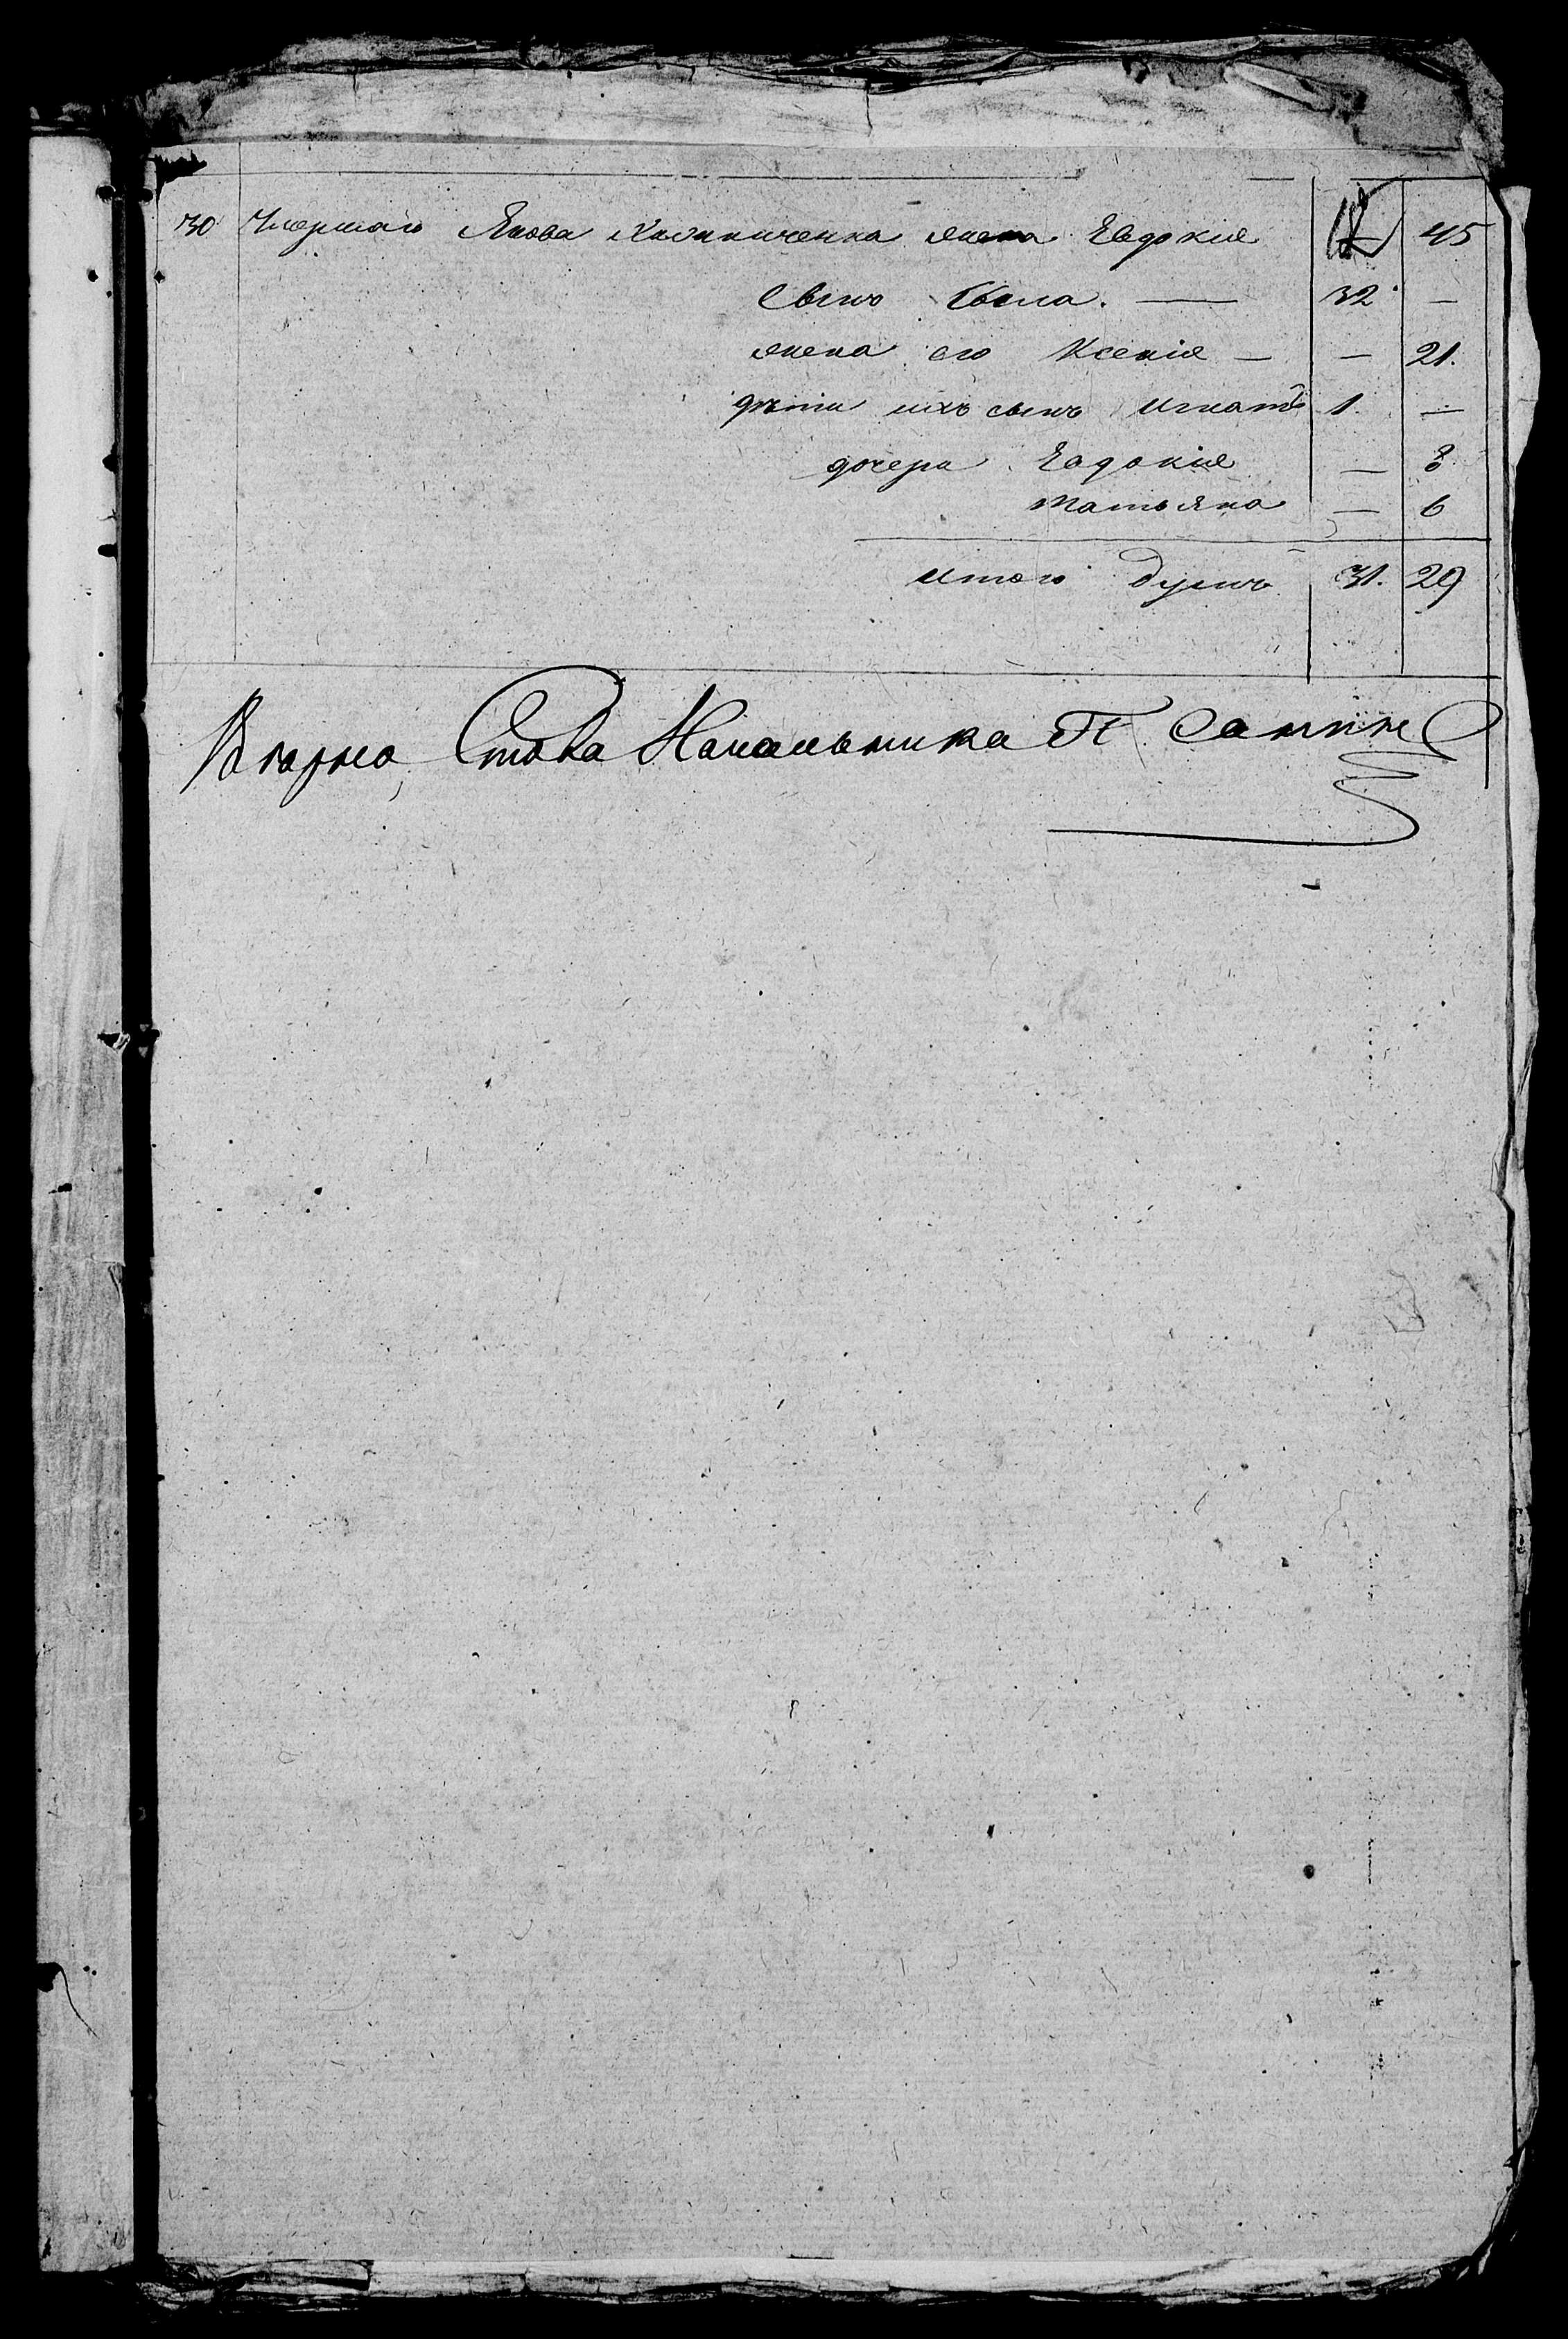 30 Умершаго Якова Калиниченка жена Евдокия — 45
Сынъ Савва. — 32 —
жена его Ксения — — 21.
дѣти ихъ сынъ Игнатъ 1 —
дочери Евдокия — 8
Татьяна — 6
итого душъ 31. 29
Стола Начальника П.